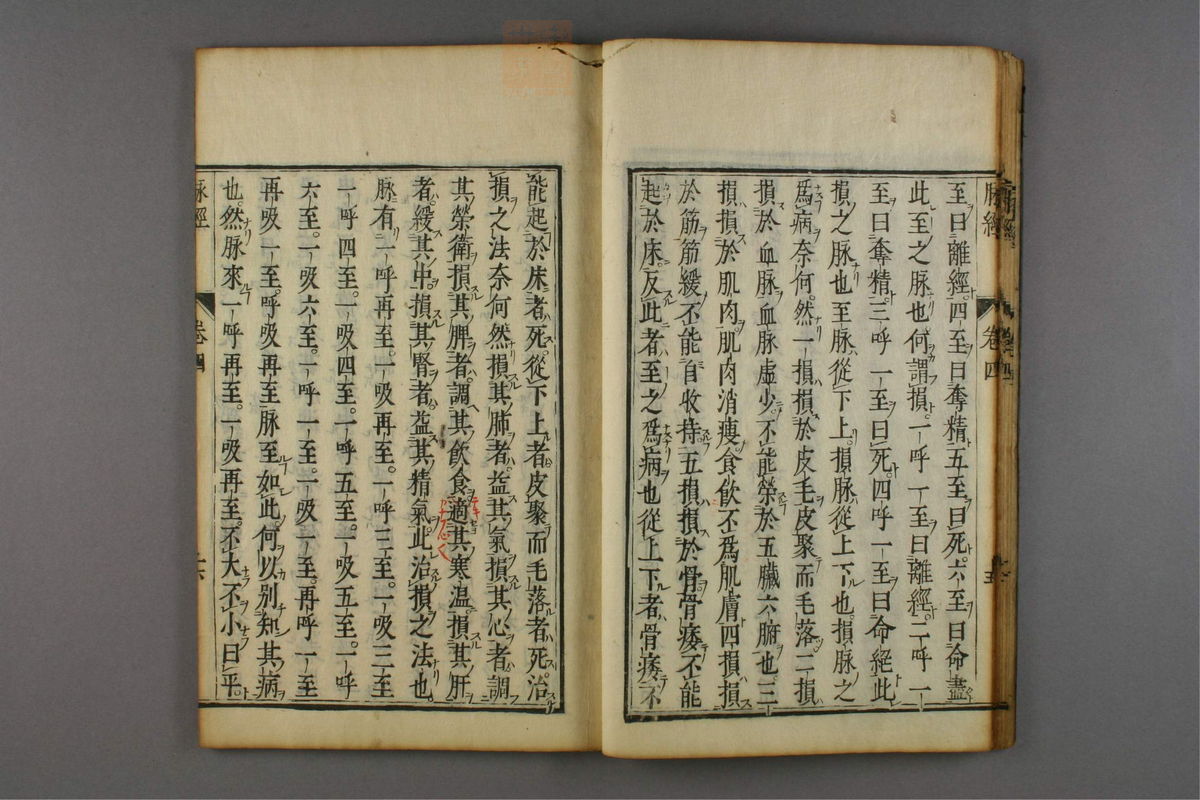 至曰離經四至曰奪精五至曰死六至曰命盡
此至之脉也何謂損一呼一至曰離經二呼一
至曰奪精三呼一至曰死四呼一至曰命絕此
損之脉也至脉從下上損脉從上下也損脉之
爲病奈何然一損損於皮毛皮聚而毛落二損
損於血脉血脉虛少不能榮於五臟六腑也三
損損於肌肉肌肉消瘦食飮不爲肌膚四損損
於筋筋緩不能自收持五損損於骨骨痿不能
起於床反此者至之爲病也從上下者骨痿不
脉經 卷四 十五
能起於床者死從下上者皮聚而毛落者死治
損之法奈何然損其肺者益其氣損其心者調
其榮衛損其脾者調其飮食適其寒温損其肝
者緩其中損其腎者益其精氣此治損之法也
脉有一呼再至一吸再至一呼三至一吸三至
一呼四至一吸四至一呼五至一吸五至一呼
六至一吸六至一呼一至一吸一至再呼一至
再吸一至呼吸再至脉至如此何以別知其病
也然脉來一呼再至一吸再至不大不小曰平
脉經 卷四 十六